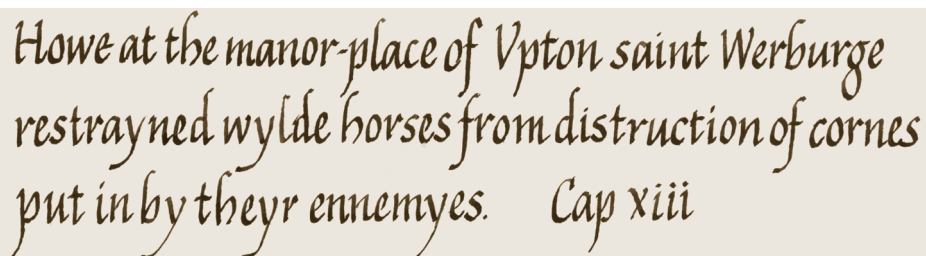 Howe at the manor-place of Vpton saint Werburge
restrayned wylde horses from distruction of cornes
put in by theyr ennemyes. Cap xiii